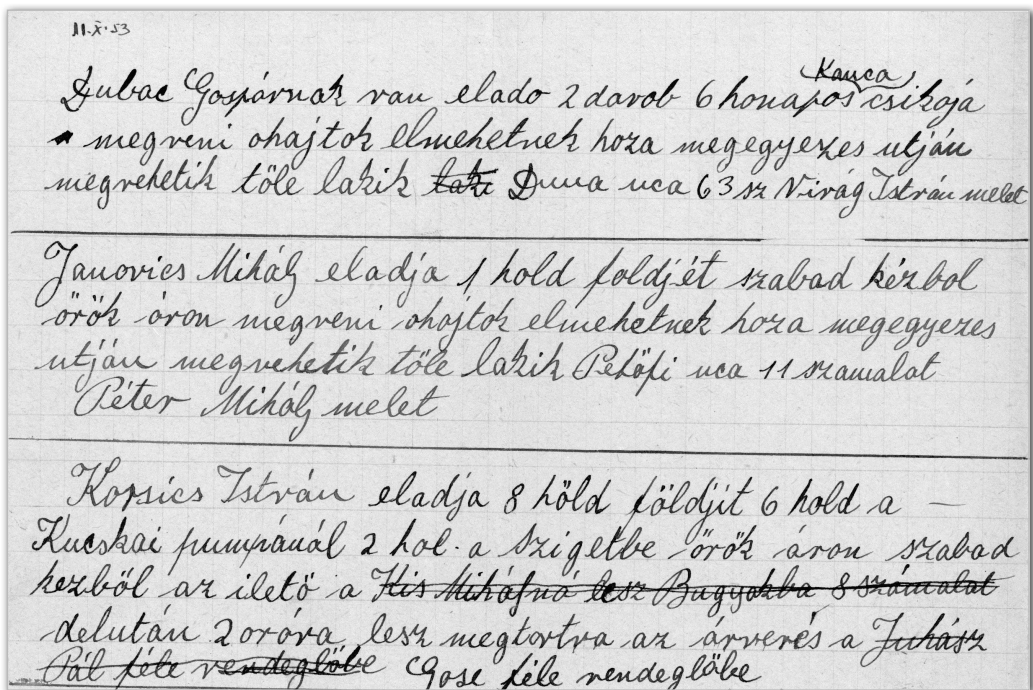 11.X.53
Kanca
Dubac Gospárnak van elado 2 darob 6 honapos csikoja
megveni ohajtok elmehetnek hoza megegyezes utján
megvehetik töle lakik laki Duna uca 63 sz Virág István melet
Janovics Mihálj eladja 1 hold foldjét szabad kézbol
örök áron megveni ohajtok elmehetnek hoza megegyezes
utján megvehetik töle lakik Petöfi uca 11 szamalat
Péter Mihálj melet
Korsics István eladja 8 höld földjit 6 hold a —
Kucskai pumpánál 2 hol. a szigetbe örök áron szabad
kezböl az iletö a Kis Mihájná lesz Bugyakba 8 számalat
delután 2 oróra lesz megtortva az árverés a Juhász
Pál féle vendeglöbe Gose féle vendeglöbe